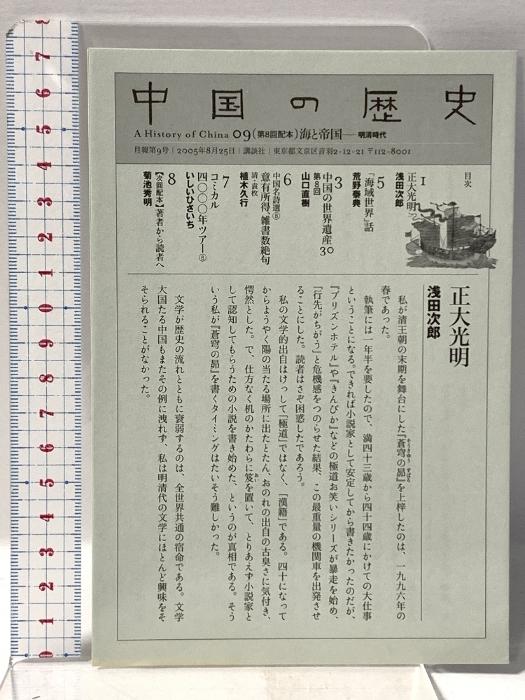 中国の歴史
A History of China 09(第8回配本)海と帝国―明清時代
月報第9号|2005年8月25日|講談社|東京都文京区音羽2-12-21 〒112-8001
目次
1
正大光明
浅田次郎
5
「海域世界」話
荒野泰典
3
中国の世界遺産30
第8回
山口直樹
6
中国名詩選⑧
清・袁枚
意有所得、雑書数絶句
植木久行
7
コミカル
四〇〇〇年ツアー⑧
いしいひさいち
8
【次回配本】著者から読者へ
菊池秀明
正大光明
浅田次郎
私が清王朝の末期を舞台にした『蒼穹の昴』を上梓したのは、一九九六年の
春であった。
執筆には一年半を要したので、満四十三歳から四十四歳にかけての大仕事
ということになる。できれば小説家として安定してから書きたかったのだが、
『プリズンホテル』や『きんぴか』などの極道お笑いシリーズが暴走を始め、
「行先がちがう」と危機感をつのらせた結果、この最重量の機関車を出発させ
ることにした。読者はさぞ困惑したであろう。
私の文学的出自はけっして「極道」ではなく、「漢籍」である。四十になって
からようやく陽の当たる場所に出たとたん、おのれの出自の古臭さに気付き、
愕然とした。で、仕方なく机のかたわらに笈を置いて、とりあえず小説家と
して認知してもらうための小説を書き始めた、というのが真相である。そう
いう私が『蒼穹の昴』を書くタイミングはたいそう難しかった。
文学が歴史の流れとともに衰弱するのは、全世界共通の宿命である。文学
大国たる中国もまたその例に洩れず、私は明清代の文学にほとんど興味をそ
そられることがなかった。